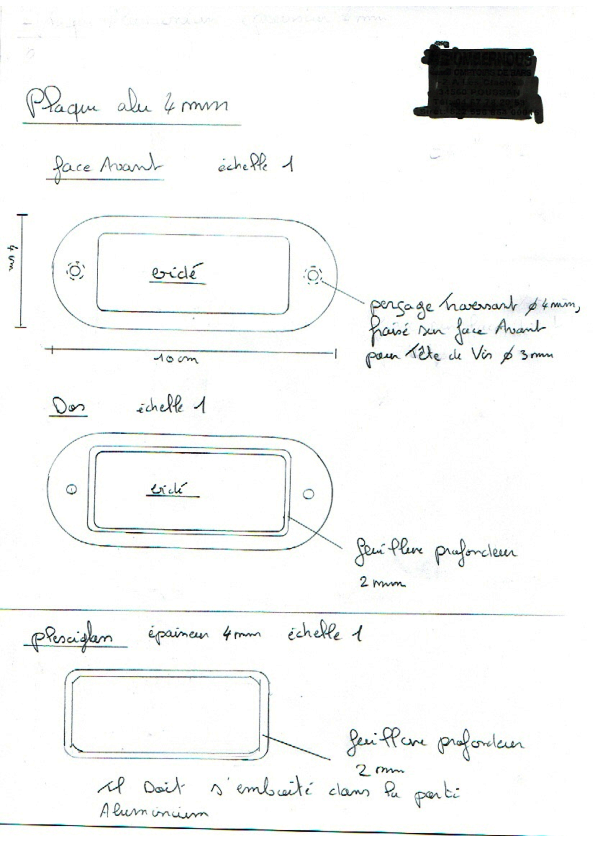 Plaque alu 4 mm
face Avant échelle 1
4cm
evidé
perçage traversant ø 4mm,
fraisé sur face Avant
pour Tête de Vis ø 3mm
10 cm
Dos échelle 1
evidé
feuillure profondeur
2 mm
plesciglass épaisseur 4mm échelle 1
feuillure profondeur
2 mm
Il Doit s'emboité dans la parti
Alumunium